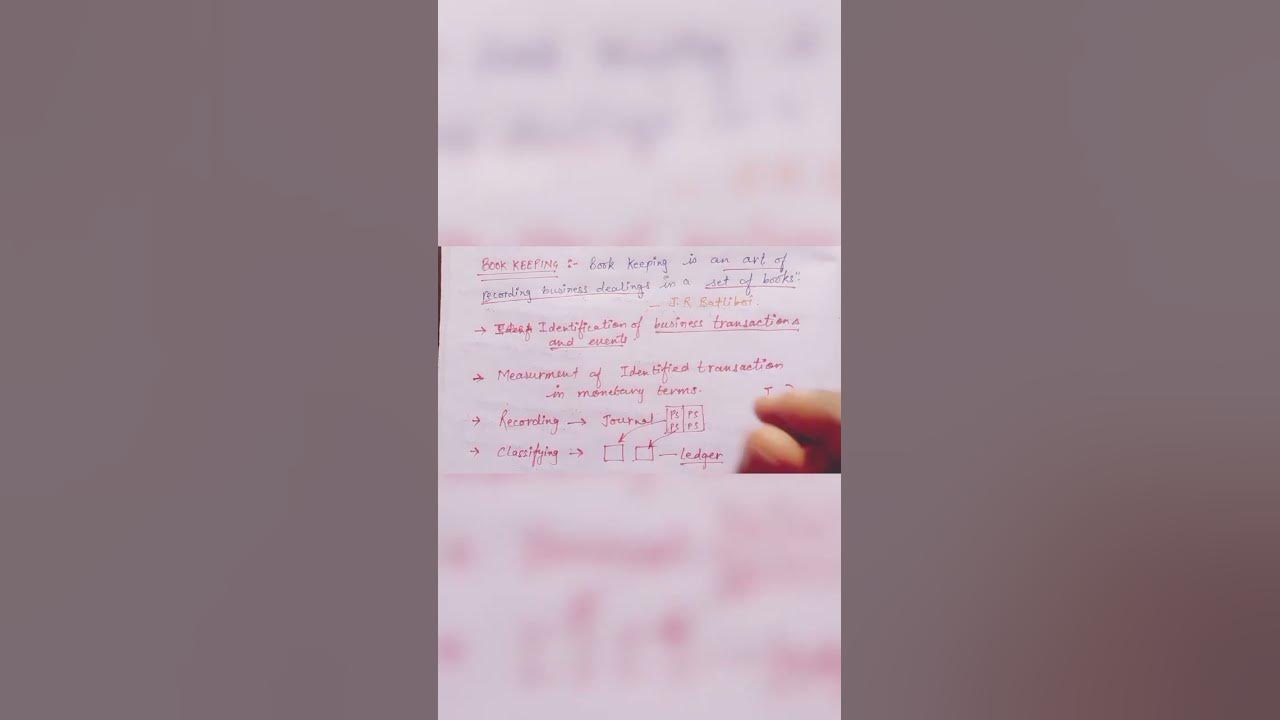 BOOK KEEPING :- Book keeping is an art of
recording business dealings in a set of books".
- J.R Batliboi.
→ Identification of business transactions
and events.
→ Measurment of Identified transaction
in monetary terms.
→ Recording → Journal PS PS
PS PS
→ Classifying → — ledger